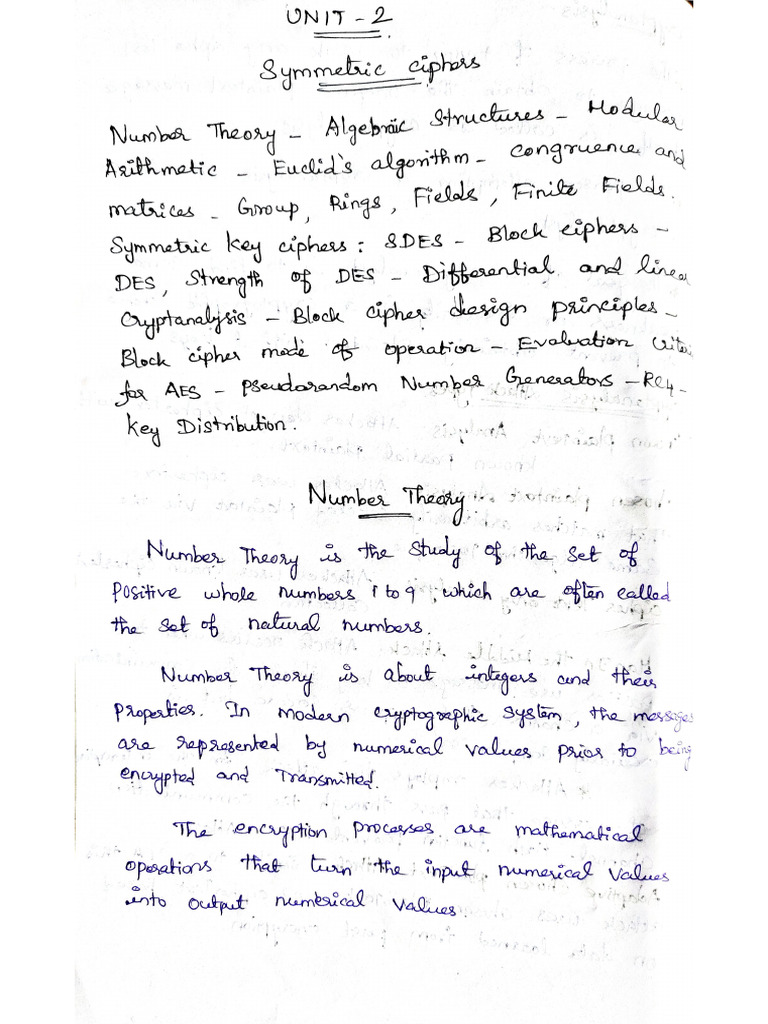 UNIT - 2
Symmetric ciphers
Number Theory - Algebraic Structures - Modular
Arithmetic - Euclid's algorithm - congruence and
matrices - Group, Rings, Fields, Finite Fields.
Symmetric key ciphers: SDES - Block ciphers -
DES, Strength of DES - Differential and linear
Cryptanalysis - Block cipher design principles -
Block cipher mode of operation - Evaluation criteri
for AES - Pseudorandom Number Generators - RC4 -
key Distribution.
Number Theory
Number Theory is the study of the set of
positive whole numbers 1 to 9, which are often called
the set of natural numbers.
Number Theory is about integers and their
properties. In modern cryptographic system, the messages
are represented by numerical values prior to being
encrypted and Transmitted.
The encryption processes are mathematical
operations that turn the input numerical values
into output numerical values